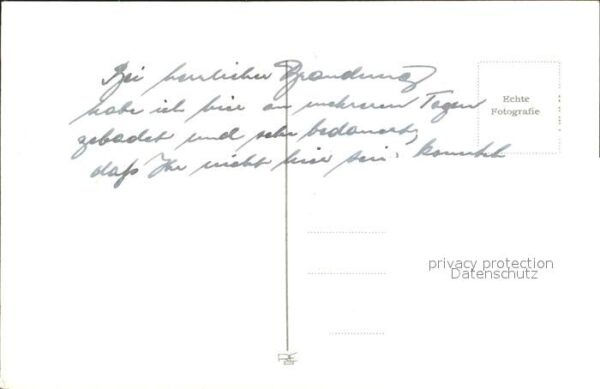 Bei herrlicher Brandung
habe ich hier an mehreren Tagen
gebadet und sehr bedauert,
daß Ihr nicht hier sein konntet
Echte
Fotografie
privacy protection
Datenschutz